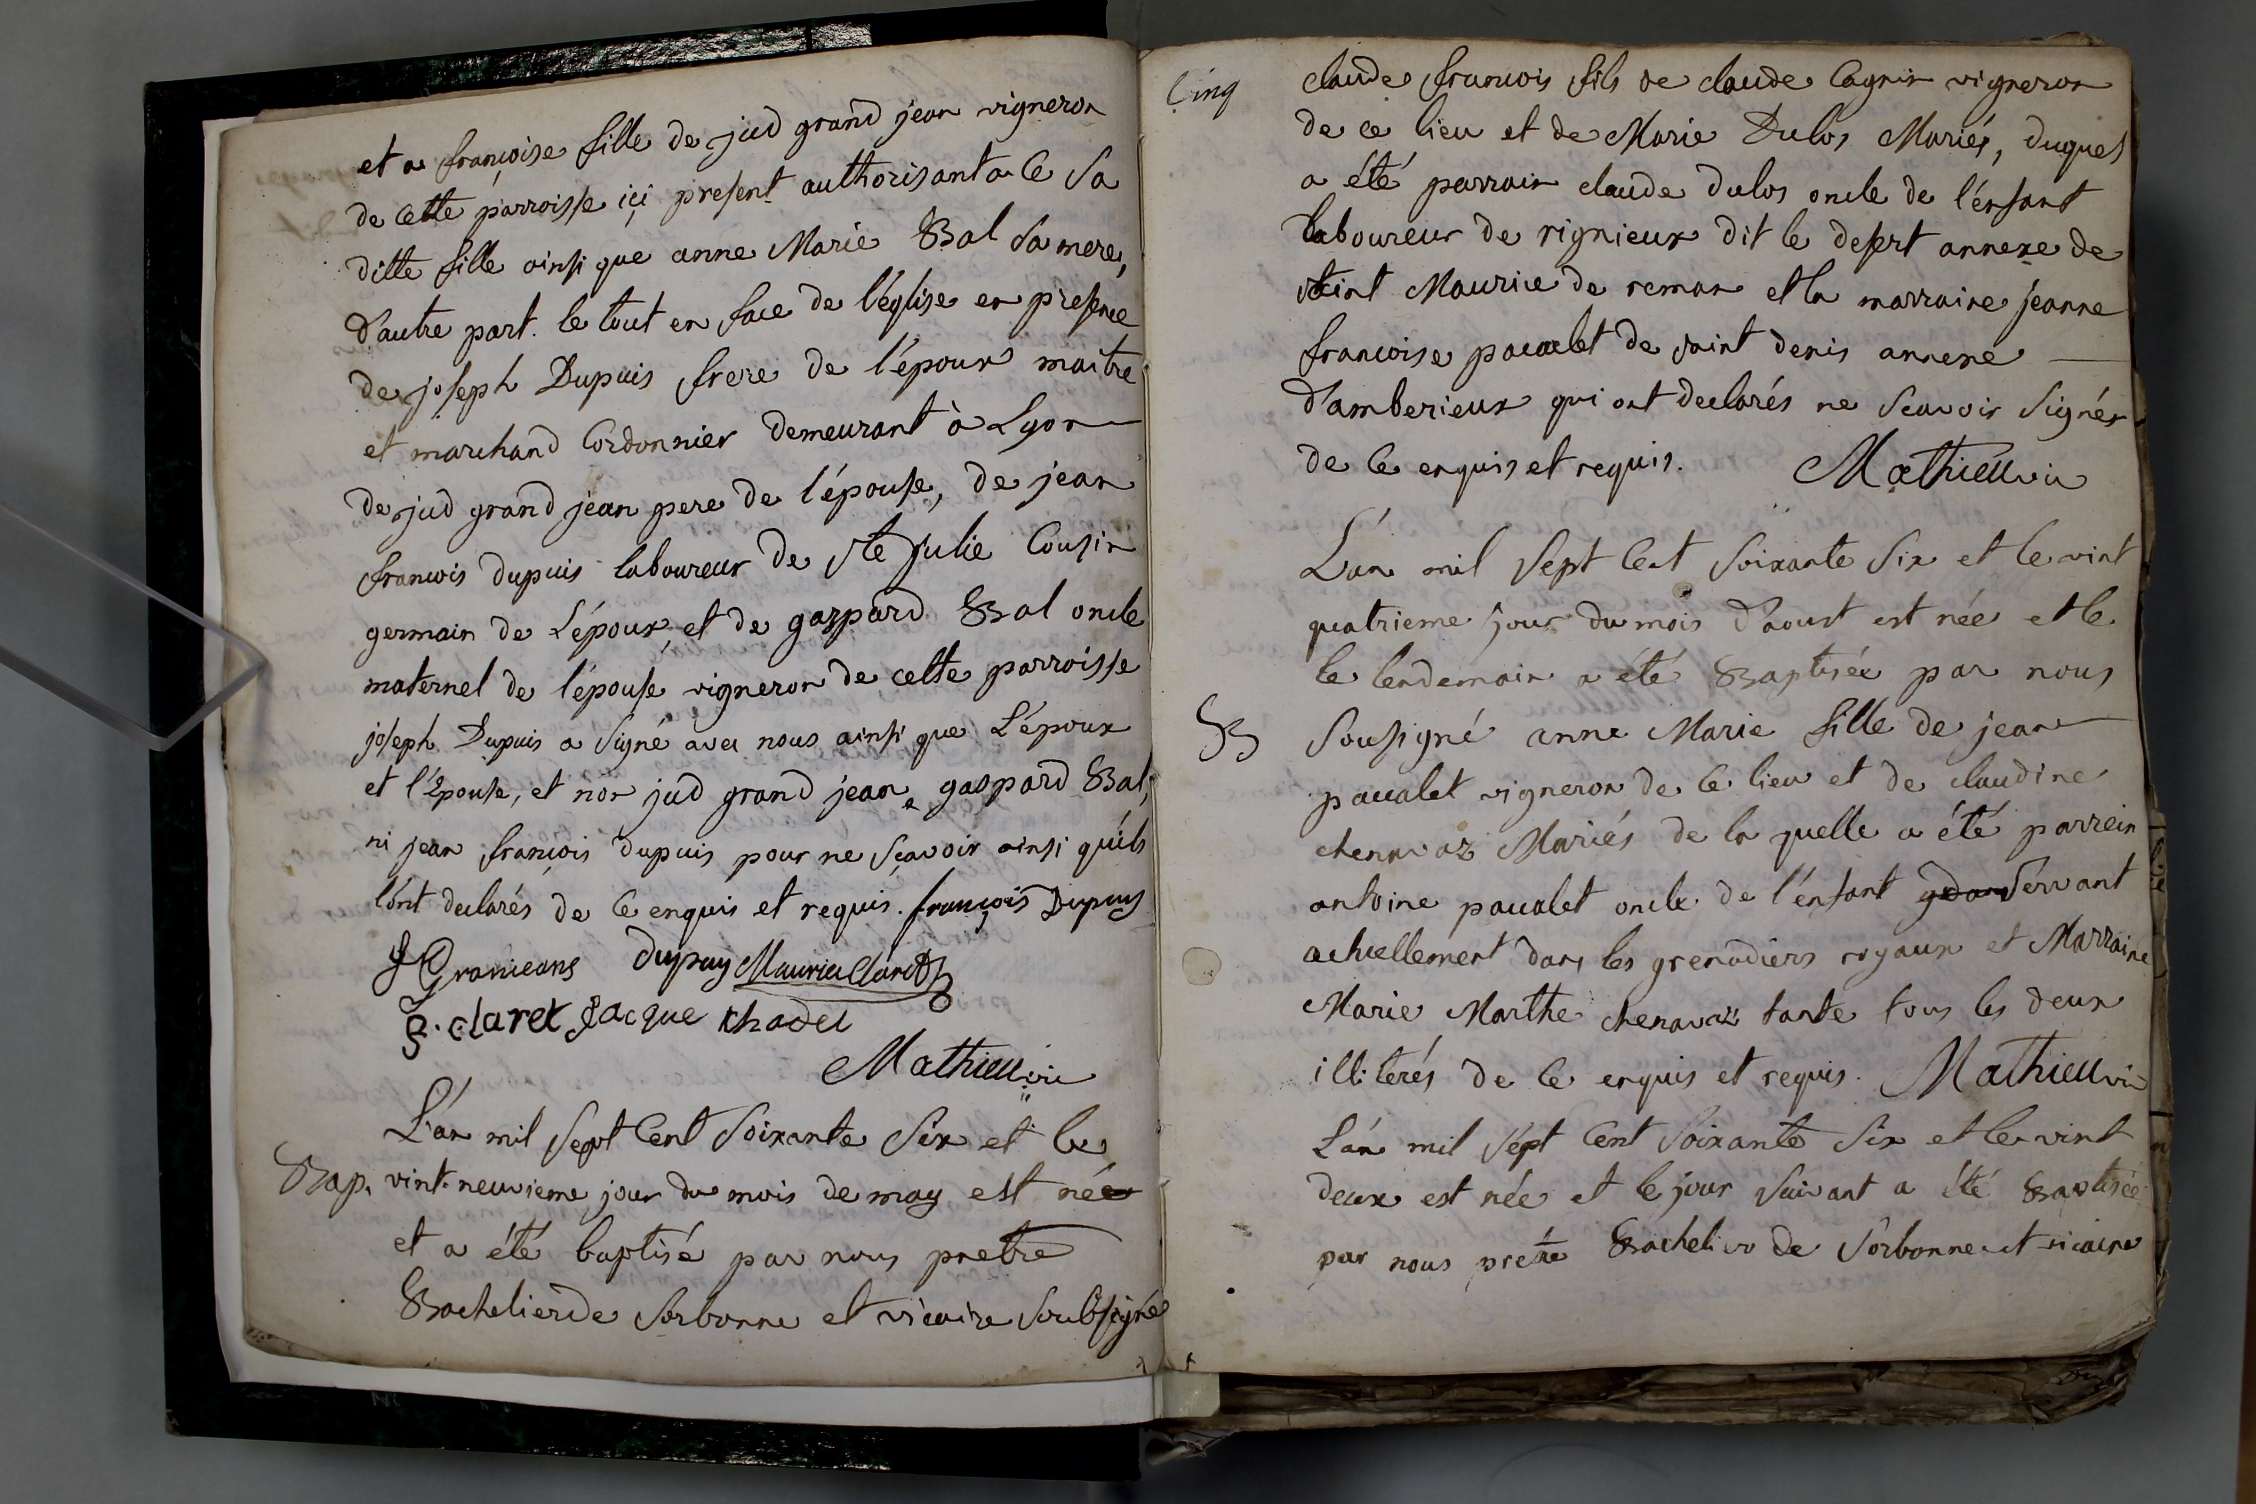 et a françoise fille de jud grand jean vigneron
de cette parroisse içi present authorisant a ce sa
ditte fille ainsi que anne Marie Bal sa mere,
d'autre part. le tout en face de l'église en presence
de joseph Dupuis frere de l'époux maitre
et marchand Cordonnier demeurant à Lyon
de jud grand jean pere de l'épouse, de jean
francois dupuis laboureur de ste Julie Cousin
germain de L'époux, et de gaspard Bal oncle
maternel de l'épouse vigneron de cette parroisse
joseph Dupuis a signé avec nous ainsi que L'époux
et l'Epouse, et non jud grand jean, gaspard Bal,
ni jean françois dupuis pour ne sçavoir ainsi qu'ils
l'ont declarés de ce enquis et requis. françois Dupuys
f Granieans Dupuy Maurice Claret
g. claret jacque chadel
Mathieu vic
L'an mil sept Cent soixante six et le
Bap. vint-neuvieme jour du mois de may est né
et a été baptisé par nous pretre
Bachelier de sorbonne et vicaire soubsigné
Cinq
claude francois fils de claude Cagnin vigneron
de ce lieu et de Marie Dulos Mariés, duquel
a été parrain claude dulos oncle de l'enfant
laboureur de rignieux dit le desert annexe de
saint Maurice de reman et la marraine jeanne
francoise pacalet de saint denis annexe
d'amberieux qui ont declarés ne scavoir signér
de ce enquis et requis. Mathieu vic
L'an mil sept Cent soixante six et le vint
quatrieme jour du mois d'aoust est née et le
le lendemain a été Baptisée par nous
B sousigné anne Marie fille de jean
pacalet vigneron de ce lieu et de claudine
chenavaz Mariés de la quelle a été parrein
antoine pacalet oncle de l'énfant servant
actuellement dans les grenadiers royaux et Marraine
Marie Marthe chenavaz tante tous les deux
illiterés de ce enquis et requis. Mathieu vic
L'an mil sépt Cent soixante six et le vint
deux est née et le jour suivant a été Baptisée
par nous prétre Bachelier de sorbonne et vicaire